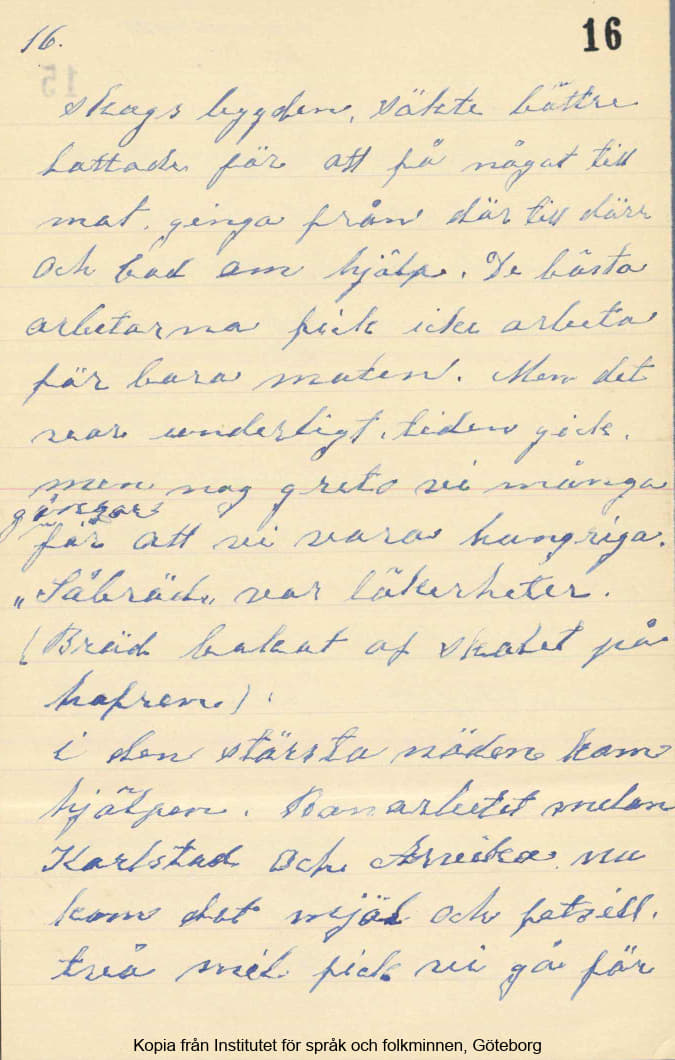 16.
16
skogs bygden, sökte bättre
lottade för att få något till
mat. ginga från dör till dörr
och bad om hjälp. De bästa
arbetarna fick icke arbeta
för bara maten. Men det
var underligt. tiden gick.
men nog greto vi många
gångar
för att vi voro hungriga.
„Såbröd„ var läkerheter.
(Bröd bakat af skalet på
hafren).
i den största nöden kom
hjälpen. Banarbetet mellan
Karlstad och Arvika. nu
kom det mjöl och potsell.
två mil fick vi gå för
Kopia från Institutet för språk och folkminnen, Göteborg